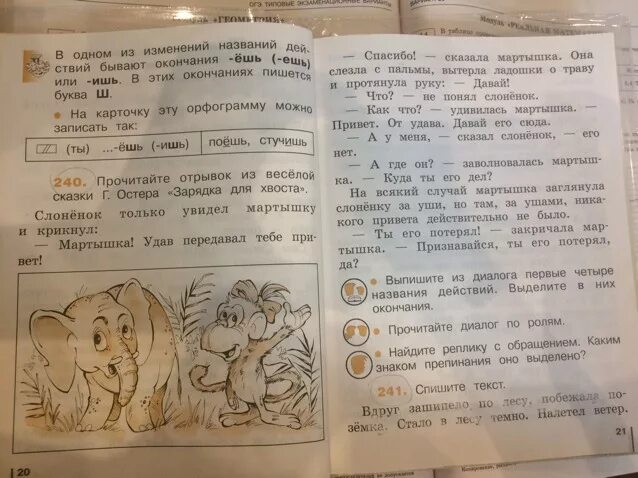 ОГЭ ТИПОВЫЕ ЭКЗАМЕНАЦИОННЫЕ ВАРИАНТЫ
«ГЕОМЕТРИЯ»
Модуль «РЕАЛЬНАЯ МАТЕМ
В таблице
В одном из изменений названий дей-
ствий бывают окончания -ёшь (-ешь)
или -ишь. В этих окончаниях пишется
буква Ш.
• На карточку эту орфограмму можно
записать так:
(ты) ...-ёшь (-ишь) поёшь, стучишь
240. Прочитайте отрывок из весёлой
сказки Г. Остера «Зарядка для хвоста».
Слонёнок только увидел мартышку
и крикнул:
— Мартышка! Удав передавал тебе при-
вет!
20
— Спасибо! — сказала мартышка. Она
слезла с пальмы, вытерла ладошки о траву
и протянула руку: — Давай!
— Что? — не понял слонёнок.
— Как что? — удивилась мартышка. —
Привет. От удава. Давай его сюда.
— А у меня, — сказал слонёнок, — его
нет.
— А где он? — заволновалась мартыш-
ка. — Куда ты его дел?
На всякий случай мартышка заглянула
слонёнку за уши, но там, за ушами, ника-
кого привета действительно не было.
— Ты его потерял! — закричала мар-
тышка. — Признавайся, ты его потерял,
да?
• Выпишите из диалога первые четыре
названия действий. Выделите в них
окончания.
• Прочитайте диалог по ролям.
• Найдите реплику с обращением. Каким
знаком препинания оно выделено?
241. Спишите текст.
Вдруг зашипело по лесу, побежала по-
зёмка. Стало в лесу темно. Налетел ветер,
21